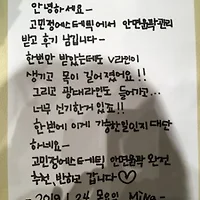 안녕하세요~
고민정에스테틱에서 안면윤곽관리
받고 후기 남깁니다~
한번만 받았는데도 V라인이
생기고 목이 길어졌어요!!
그리고 광대라인도 들어가고...
너무 신기한거 있죠!!
한번에 이게 가능한일인지 대단
하네요~
고민정에스테틱 안면윤곽 완전
추천, 받하고 갑니다♡
- 2019.1.24 목요일 Mina -